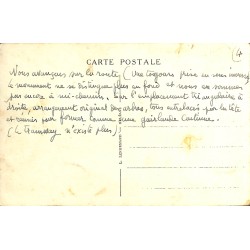 (4
CARTE POSTALE
Nous avançons sur la route. (Vue toujours prise en sens inverse)
Le monument ne se distingue plus au fond et nous ne sommes
pas encore à mi-chemin. Ici l'emplacement triangulaire à
droite, arrangement original des arbres, tous entrelacés par la tête
et réunis pour former comme une guirlande continue.
(Le tramway n'existe plus)